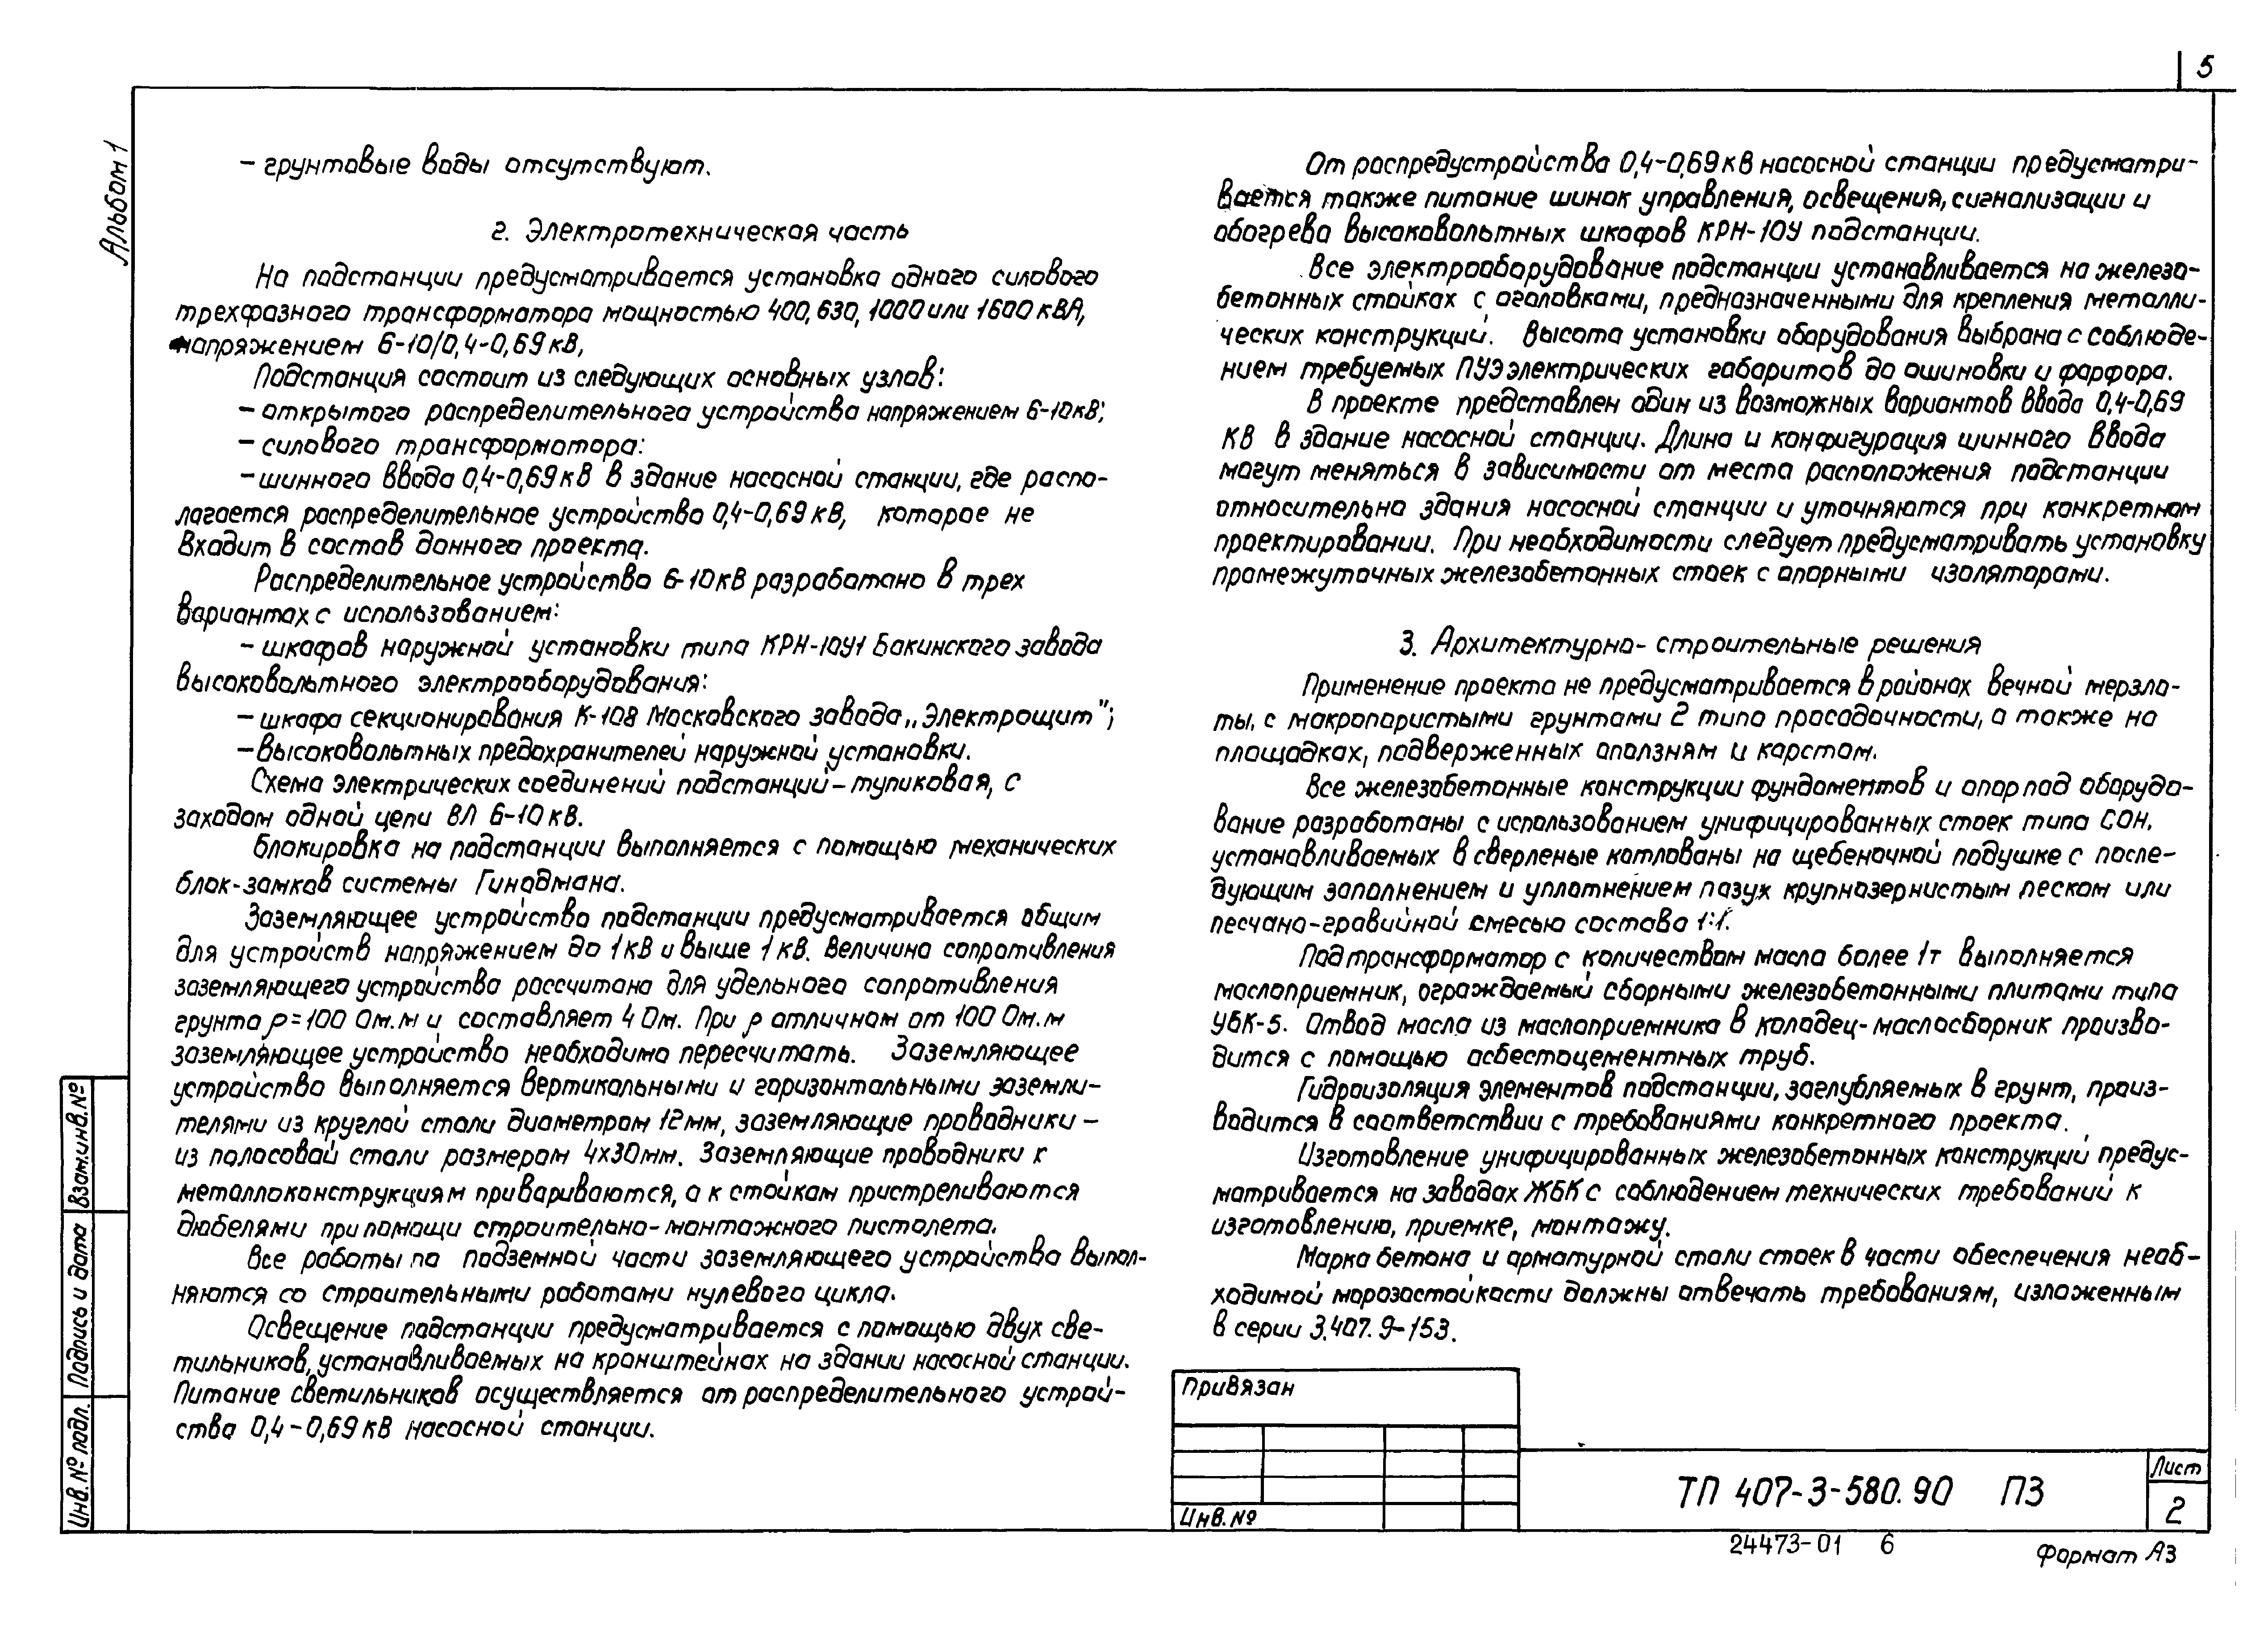 5
Альбом 1
– грунтовые воды отсутствуют.
2. Электротехническая часть
На подстанции предусматривается установка одного силового
трехфазного трансформатора мощностью 400, 630, 1000 или 1600 кВА,
напряжением 6-10/0,4-0,69 кВ,
Подстанция состоит из следующих основных узлов:
– открытого распределительного устройства напряжением 6-10кВ;
– силового трансформатора:
– шинного ввода 0,4-0,69 кВ в здание насосной станции, где распо-
лагается распределительное устройство 0,4-0,69 кВ, которое не
входит в состав данного проекта.
Распределительное устройство 6-10кВ разработано в трех
вариантах с использованием:
– шкафов наружной установки типа КРН-10У1 Бакинского завода
высоковольтного электрооборудования:
– шкафа секционирования К-108 Московского завода „Электрощит";
– высоковольтных предохранителей наружной установки.
Схема электрических соединений подстанций – тупиковая, с
заходом одной цепи ВЛ 6-10 кВ.
Блокировка на подстанции выполняется с помощью механических
блок-замков системы Гинодмана.
Заземляющее устройство подстанции предусматривается общим
для устройств напряжением до 1кВ и выше 1 кВ. Величина сопротивления
заземляющего устройства рассчитана для удельного сопротивления
грунта ρ=100 Ом.м и составляет 4 Ом. При ρ отличном от 100 Ом.м
заземляющее устройство необходимо пересчитать. Заземляющее
устройство выполняется вертикальными и горизонтальными заземли-
телями из круглой стали диаметром 12мм, заземляющие проводники –
из полосовой стали размером 4х30мм. Заземляющие проводники к
металлоконструкциям привариваются, а к стойкам пристреливаются
дюбелями при помощи строительно-монтажного пистолета.
Все работы по подземной части заземляющего устройства выпол-
няются со строительными работами нулевого цикла.
Освещение подстанции предусматривается с помощью двух све-
тильников, устанавливаемых на кронштейнах на здании насосной станции.
Питание светильников осуществляется от распределительного устрой-
ства 0,4-0,69 кВ насосной станции.
От распредустройства 0,4-0,69 кВ насосной станции предусматри-
вается также питание шинок управления, освещения, сигнализации и
обогрева высоковольтных шкафов КРН-10У подстанции.
Все электрооборудование подстанции устанавливается на железо-
бетонных стойках с оголовками, предназначенными для крепления металли-
ческих конструкций. Высота установки оборудования выбрана с соблюде-
нием требуемых ПУЭ электрических габаритов до ошиновки и фарфора.
В проекте представлен один из возможных вариантов ввода 0,4-0,69
кВ в здание насосной станции. Длина и конфигурация шинного ввода
могут меняться в зависимости от места расположения подстанции
относительно здания насосной станции и уточняются при конкретном
проектировании. При необходимости следует предусматривать установку
промежуточных железобетонных стоек с опорными изоляторами.
3. Архитектурно-строительные решения
Применение проекта не предусматривается в районах вечной мерзло-
ты, с макропористыми грунтами 2 типа просадочности, а также на
площадках, подверженных оползням и карстам.
Все железобетонные конструкции фундаментов и опор под оборудо-
вание разработаны с использованием унифицированных стоек типа СОН,
устанавливаемых в сверленые котлованы на щебеночной подушке с после-
дующим заполнением и уплотнением пазух крупнозернистым песком или
песчано-гравийной смесью состава 1:1.
Под трансформатор с количеством масла более 1т выполняется
маслоприемник, ограждаемый сборными железобетонными плитами типа
УБК-5. Отвод масла из маслоприемника в колодец-маслосборник произво-
дится с помощью асбестоцементных труб.
Гидроизоляция элементов подстанции, заглубляемых в грунт, произ-
водится в соответствии с требованиями конкретного проекта.
Изготовление унифицированных железобетонных конструкций предус-
матривается на заводах ЖБК с соблюдением технических требований к
изготовлению, приемке, монтажу.
Марка бетона и арматурной стали стоек в части обеспечения необ-
ходимой морозостойкости должны отвечать требованиям, изложенным
в серии 3.407.9-153.
Взам.инв.№
Подпись и дата
Инв. № подл.
Привязан
Инв. №
ТП 407-3-580.90 ПЗ
Лист
2
24473-01 6
Формат А3